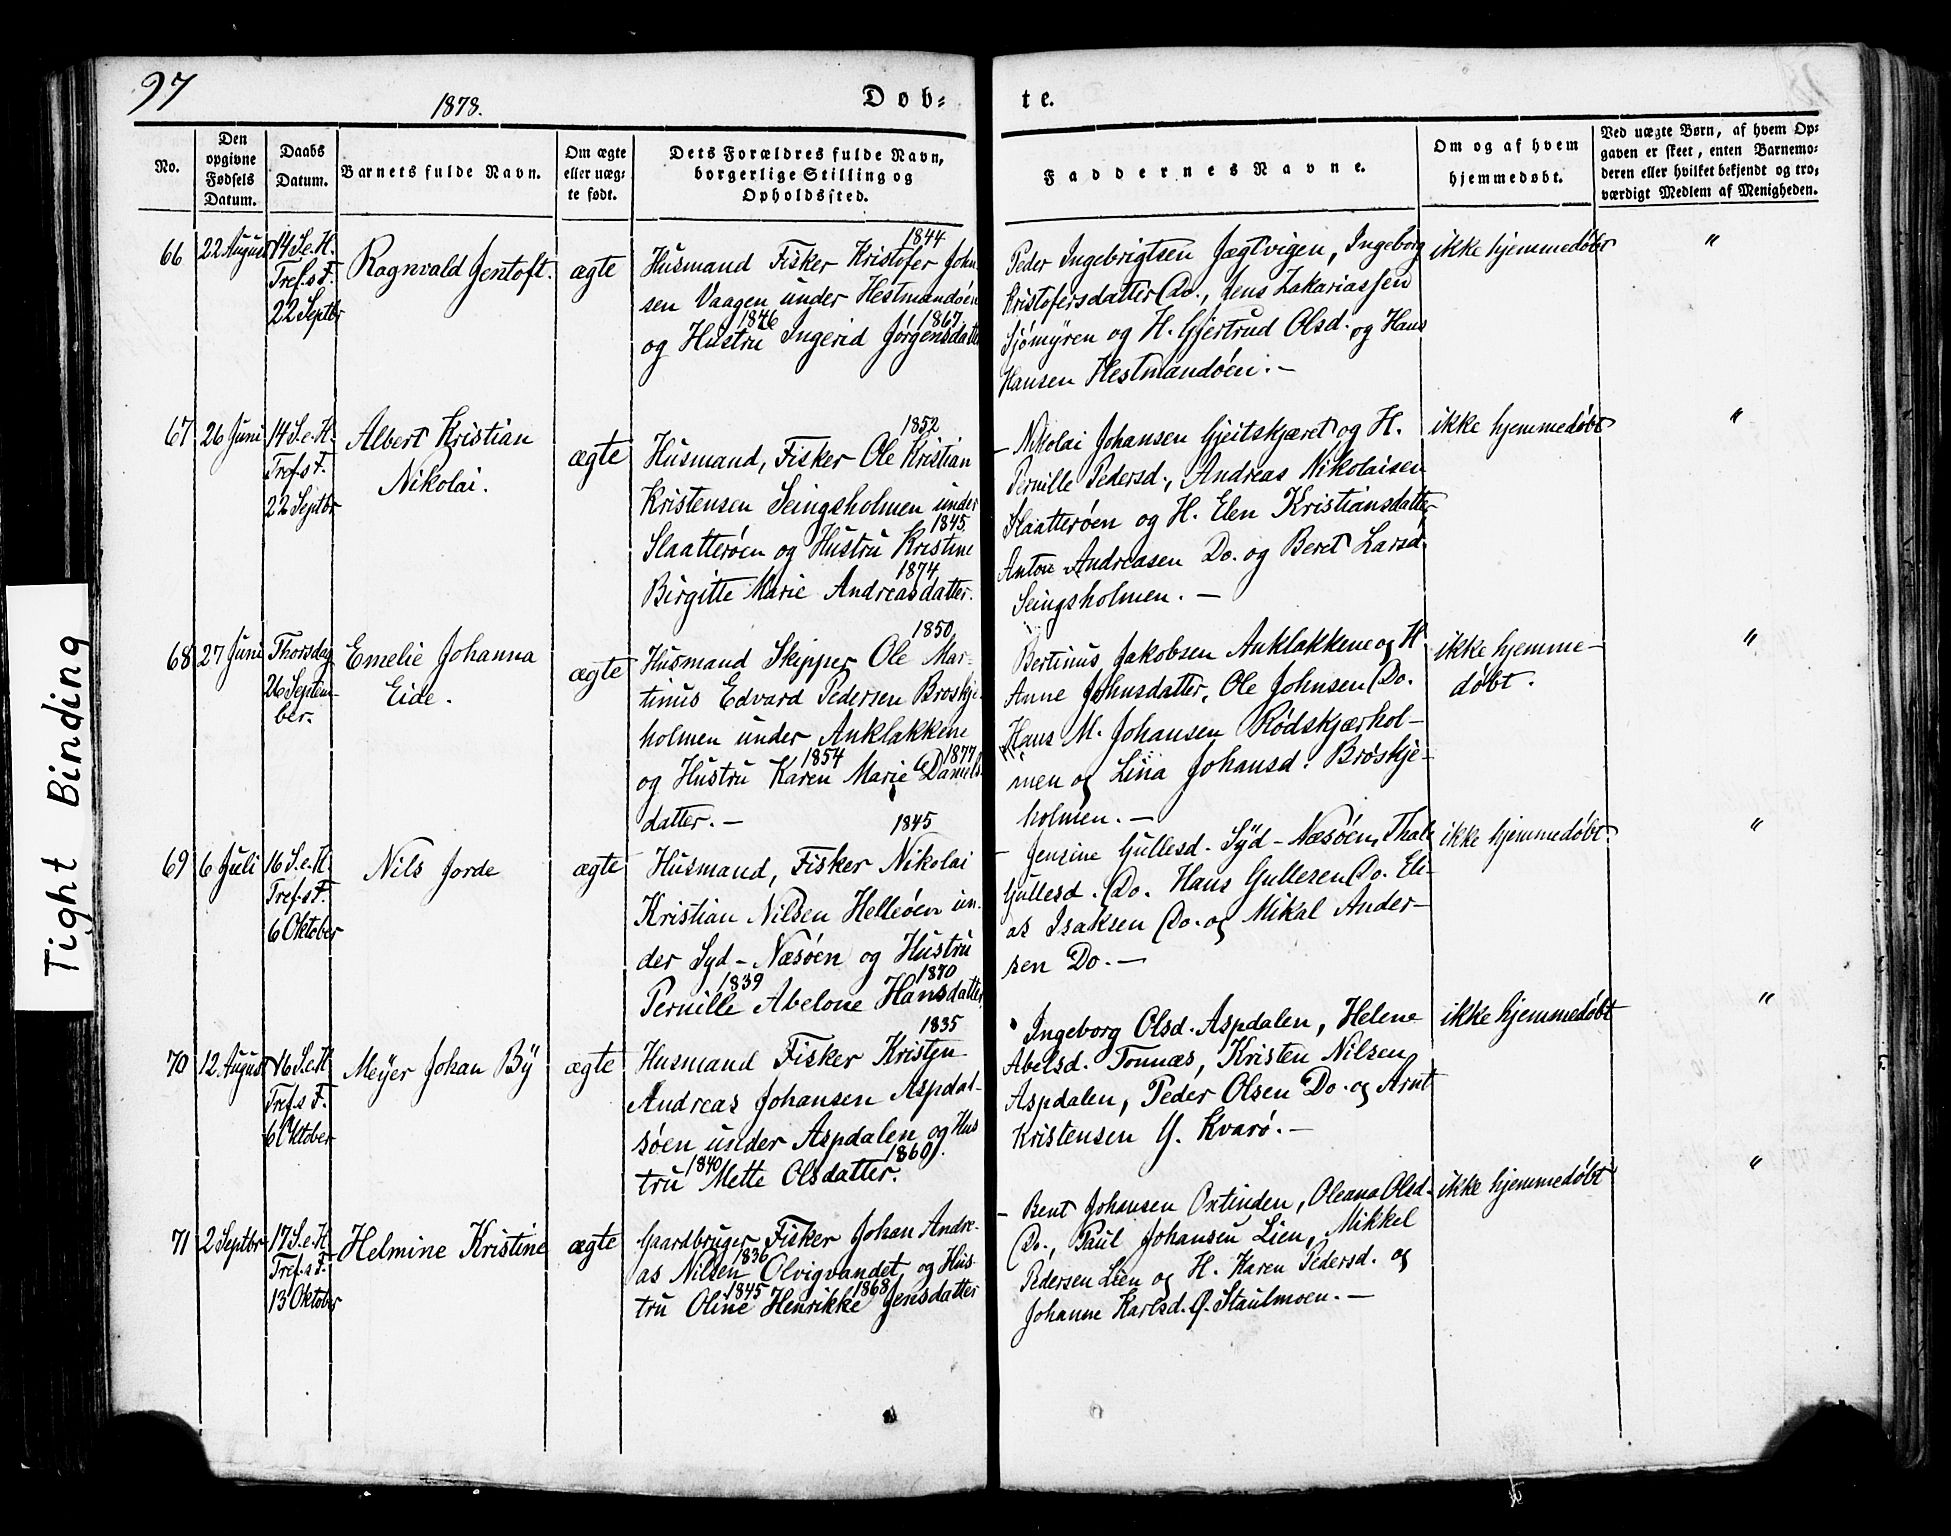 97
1878.
Døb=
te.
No.
Den
opgivne
Fødsels
Datum.
Daabs
Datum.
Barnets fulde Navn.
Om ægte
eller uæg-
te født.
Dets Forældres fulde Navn,
borgerlige Stilling og
Opholdssted.
Faddernes Navne.
Om og af hvem
hjemmedøbt.
Ved uægte Børn, af hvem Op-
gaven er skeet, enten Barnemo-
deren eller hvilket bekjendt og tro-
værdigt Medlem af Menigheden.
66
22 August
14 S. e. H.
Tref. s F.
22 Septbr
Ragnvald Jentoft.
ægte
1844
Husmand Fisker Kristofer John
sen Vaagen under Hestmandøen
1846 1867
og Hustru Ingerid Jørgensdatter
Peder Ingebrigtsen Jægtvigen, Ingeborg
Kristofersdatter Do., Jens Zakariassen
Sjømyren og H. Gjertrud Olsd. og Hans
Hansen Hestmandøen. —
ikke hjemmedøbt
"
67
26 Juni
14 S. e. H.
Tref. s F.
22 Septbr
Albert Kristian
Nikolai.
ægte
1852
Husmand, Fisker Ole Kristian
Kristensen Seingsholmen under
1845.
Slaatterøen og Hustru Kristine
1874
Birgitte Marie Andreasdatter.
— Nikolai Johansen Gjeitskjæret og H.
Pernille Pedersd., Andreas Nikolaisen
Slaatterøen og H. Elen Kristiansdatter
Anton Andreasen Do. og Beret Larsd.
Seingsholmen. —
ikke hjemmedøbt
"
68
27 Juni
Thorsdag
26 Septem-
ber.
Emelie Johanna
Eide.
ægte
1850
Husmand Skipper Ole Mar-
tinus Edvard Pedersen Broskje-
holmen under Anklakkene
1854 1877
og Hustru Karen Marie Daniels-
datter. —
Bertinus Jakobsen Anklakkene og H.
Anne Johnsdatter, Ole Johnsen Do.
Hans M. Johansen Rødskjærhol-
men og Lina Johansd. Brøskje-
holmen. —
ikke hjemme-
døbt.
"
69
6 Juli
16 S. e. H.
Tref. s F.
6 Oktober
Nils Jorde
ægte
1845
Husmand, Fisker Nikolai
Kristian Nilsen Helleøen un-
der Syd-Næsøen og Hustru
1839 1870
Pernille Abelone Hansdatter
— Jensine Gullesd. Syd-Næsøen,
Gullesd. Do. Hans Gullesen Do. Eli-
as Isaksen Do. og Mikal Ander-
sen Do. —
ikke hjemmedøbt.
"
70
12 August
16 S. e. H.
Tref. s F.
6 Oktober
Meyer Johan By
ægte
1835
Husmand Fisker Kristen
Andreas Johansen Aspdal-
søen under Aspdalen og Hus
1840 1860
tru Mette Olsdatter.
Ingeborg Olsd. Aspdalen, Helene
Abelsd. Tonnæs, Kristen Nilsen
Aspdalen, Peder Olsen Do. og Arnt
Kristensen Y. Kvarø. —
ikke hjemmedøbt
"
71
2 Septbr
17 S. e. H.
Tref. s F.
13 Oktober
Helmine Kristine
ægte
Gaardbruger Fisker Johan Andre-
1836
as Nilsen Olvigvandet og Hus-
1845 1868
tru Oline Henrikke Jensdatter
— Bent Johansen Oxtinden, Oleana Olsd.
Do., Paul Johansen Lien, Mikkel
Pedersen Lien og H. Karen Pedersd. og
Johanne Karlsd. Ø. Staulmoen. —
ikke hjemmedøbt
"
Tight Binding